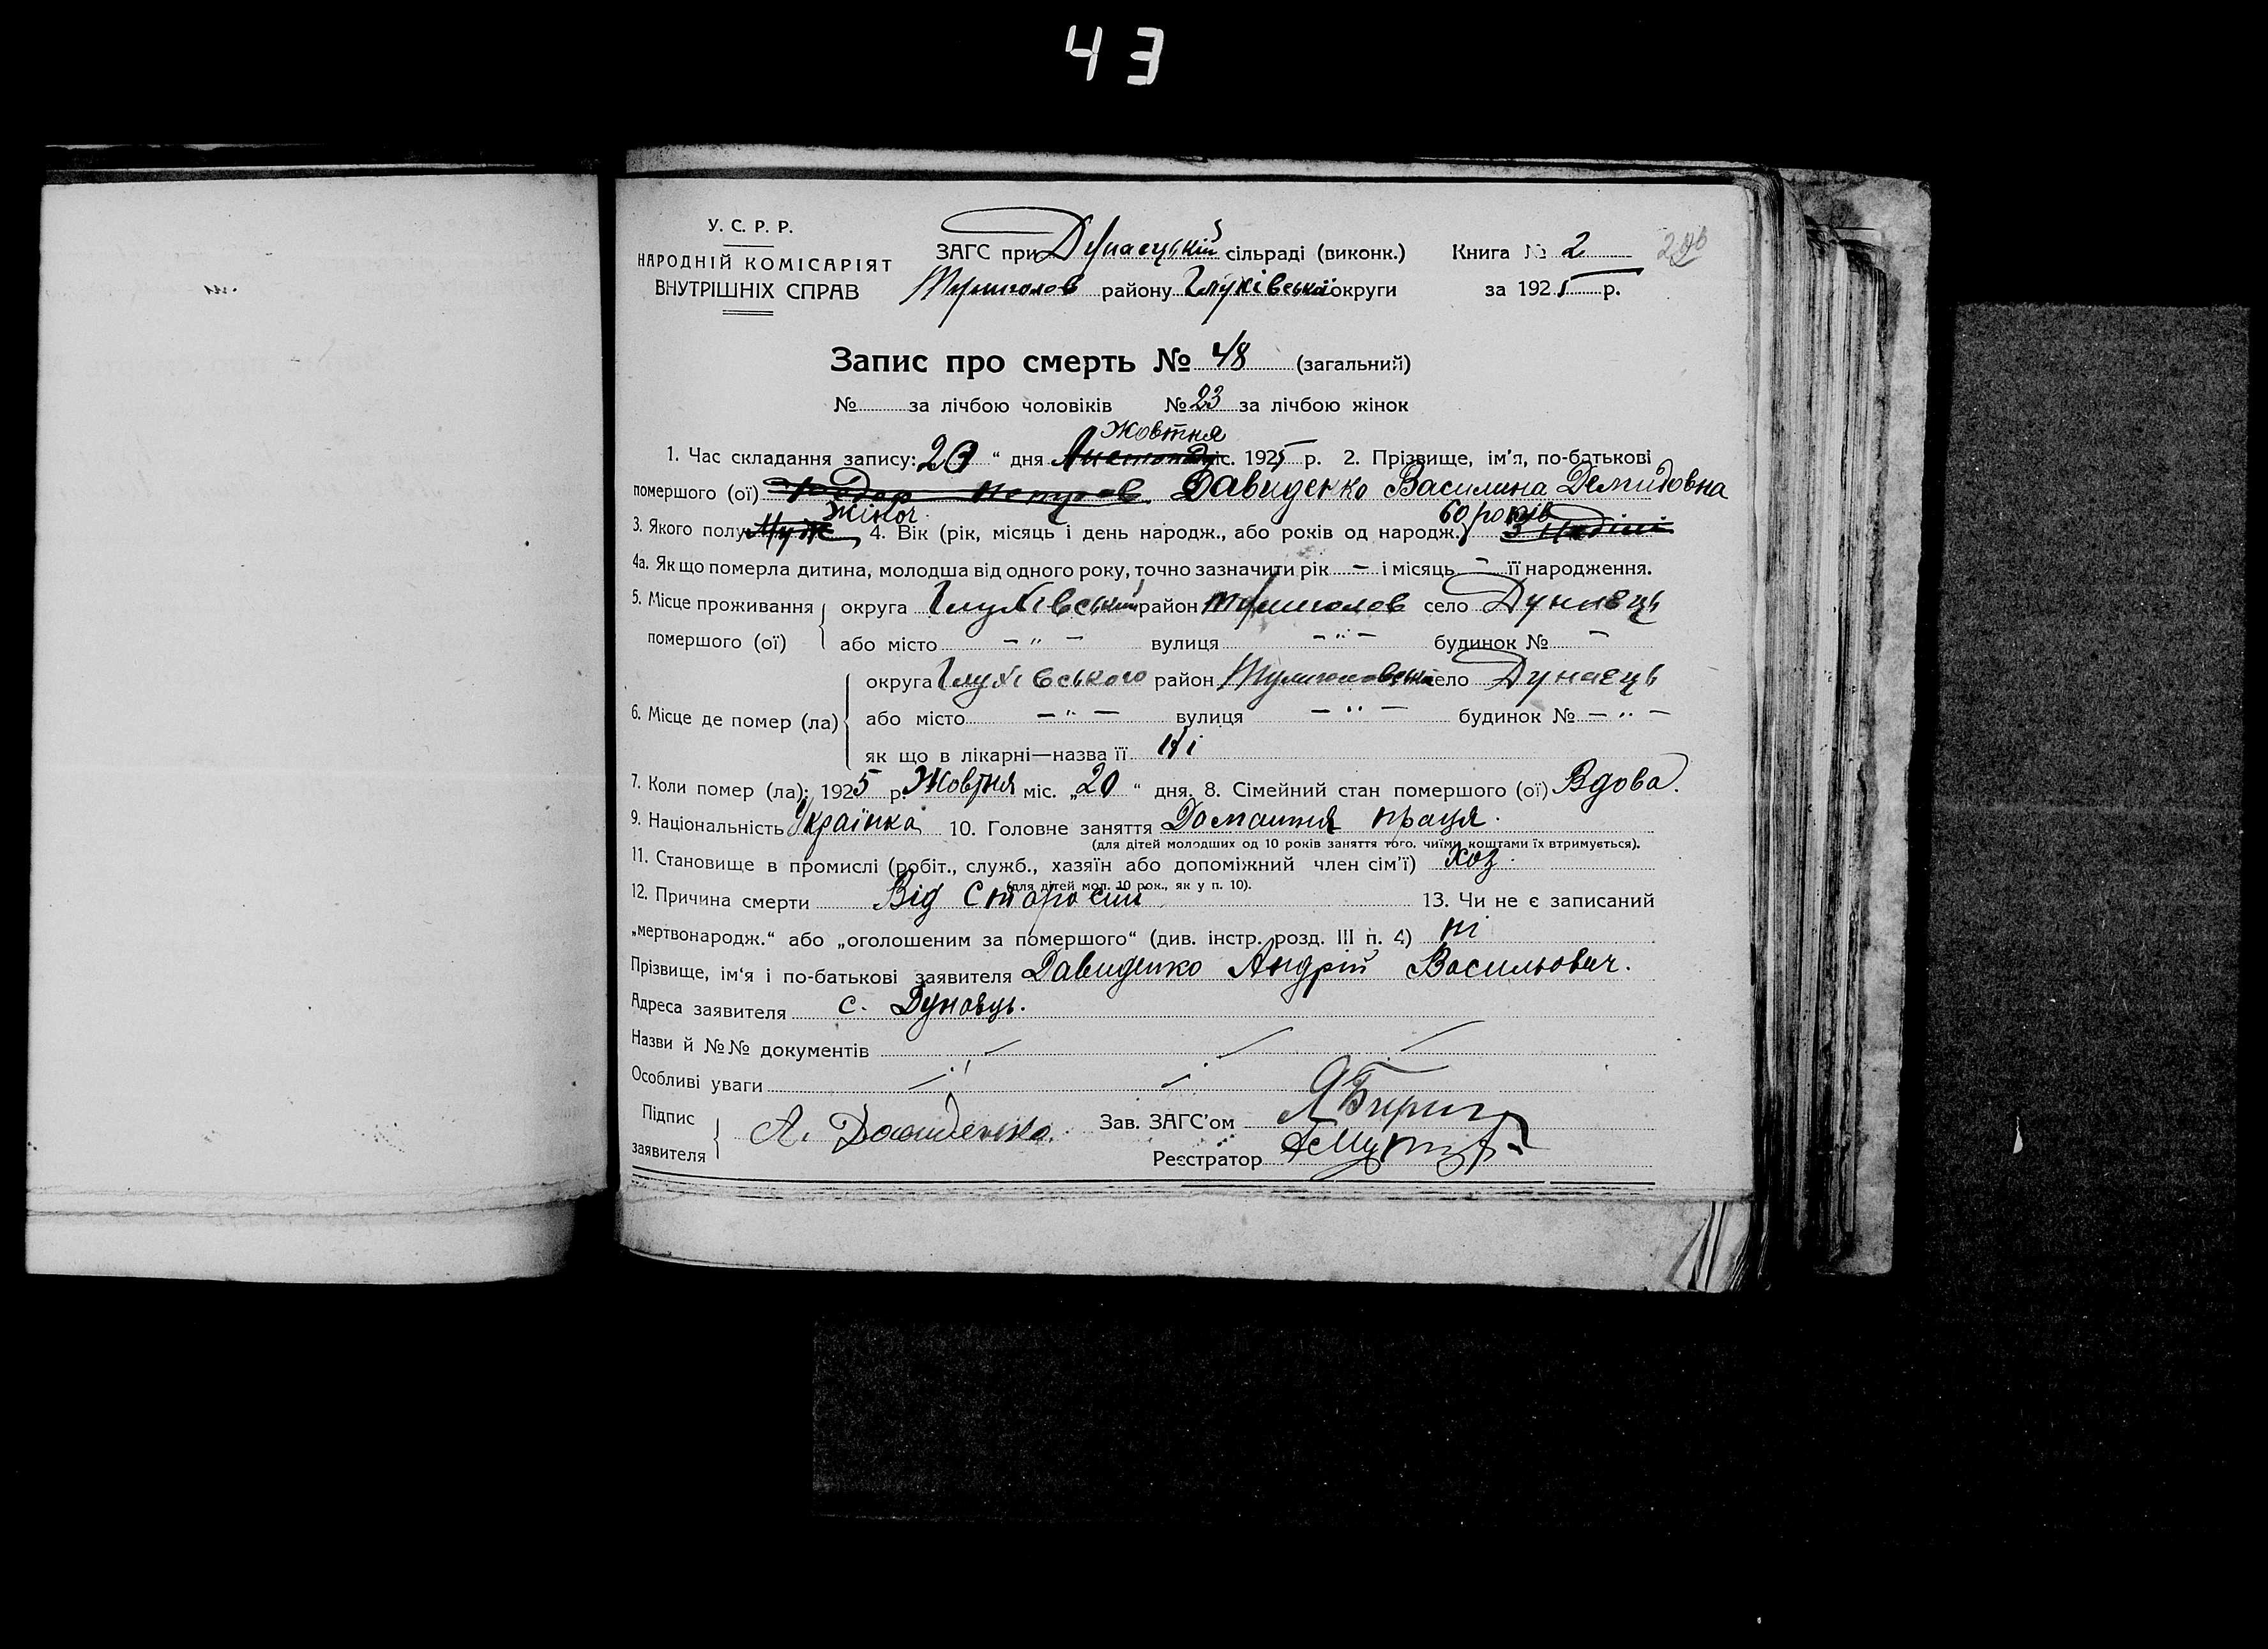 43
У. С. Р. Р.
НАРОДНІЙ КОМІСАРІЯТ
ВНУТРІШНІХ СПРАВ
ЗАГС при Дунаецькій сільраді (виконк.) Книга № 2
Тулиголов району Глухівської округи за 1925 р.
Запис про смерть № 48 (загальний)
№ за лічбою чоловіків № 23 за лічбою жінок
Жовтня
1. Час складання запису: 20 “ дня Листопаду міс. 1925 р. 2. Прізвище, ім’я, по-батькові
помершого (ої) Давиденко Василина Демидовна
Жіноч. 60 років
3. Якого полу Муж 4. Вік (рік, місяць і день народж., або років од народж.) 3 неділі
4а. Як що померла дитина, молодша від одного року, точно зазначити рік — і місяць — її народження.
5. Місце проживання помершого (ої) округа Глухівський район Тулиголов село Дунаець
або місто — " — вулиця — " — будинок № —
6. Місце де помер (ла) округа Глухівського район Тулиголовськ село Дунаець
або місто — " — вулиця — " — будинок № — " —
як що в лікарні—назва її Ні
7. Коли помер (ла): 1925 р. Жовтня міс. „20“ дня. 8. Сімейний стан помершого (ої) Вдова.
9. Національність Українка 10. Головне заняття Домашня праця.
(для дітей молодших од 10 років заняття того, чиїми коштами їх втримується).
11. Становище в промислі (робіт., служб., хазяїн або допоміжний член сім’ї) Хоз.
(для дітей мол. 10 рок., як у п. 10).
12. Причина смерти Від старости 13. Чи не є записаний
„мертвонародж.“ або „оголошеним за помершого“ (див. інстр. розд. III п. 4) ні
Прізвище, ім‘я і по-батькові заявителя Давиденко Андрій Васильович.
Адреса заявителя с. Дунаець.
Назви й №№ документів
Особливі уваги
Підпис заявителя А. Давиденко. Зав. ЗАГС’ом
Реєстратор